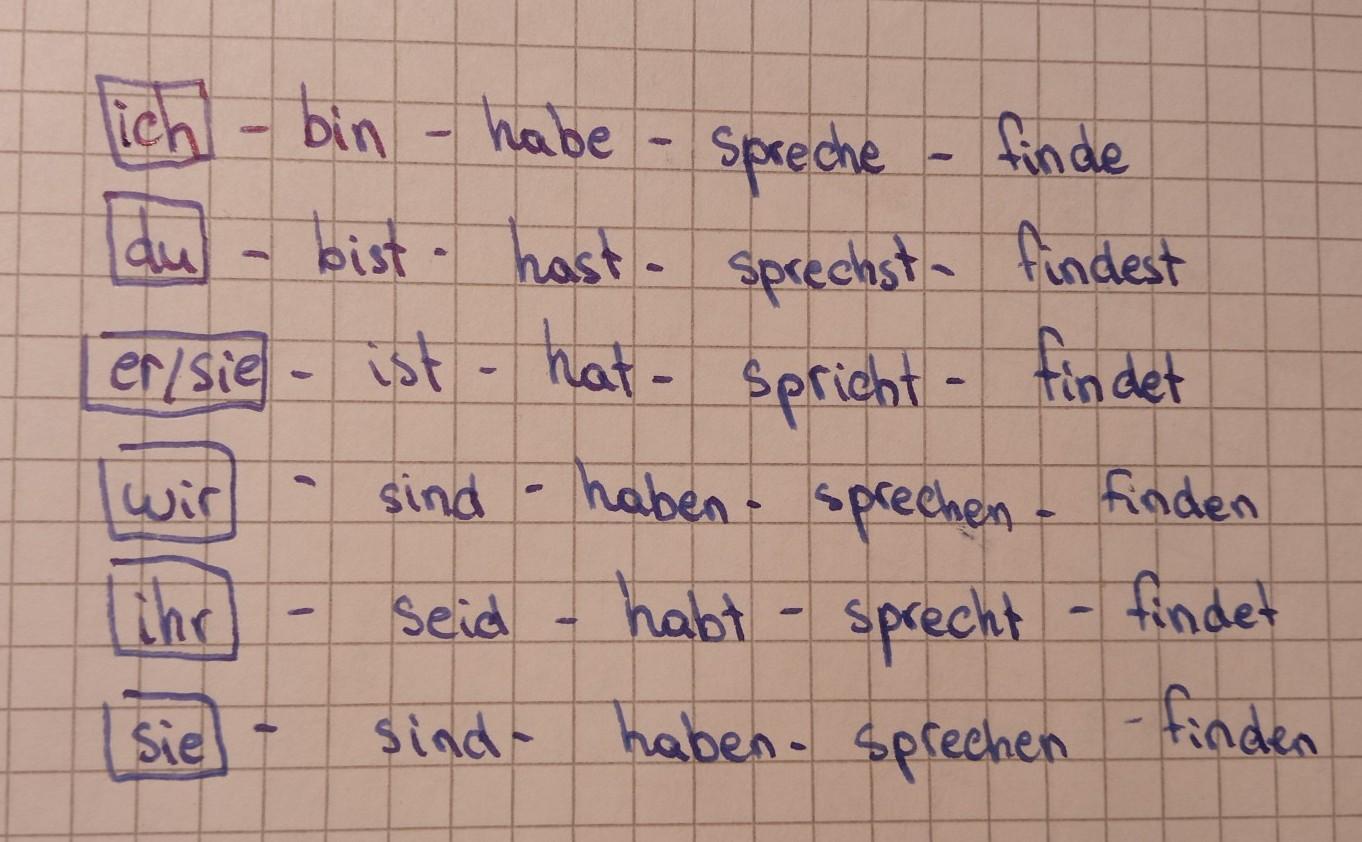 ich - bin - habe - spreche - finde
du - bist - hast - sprechst - findest
er/sie - ist - hat - spricht - findet
wir - sind - haben - sprechen - finden
ihr - seid - habt - sprecht - findet
sie - sind - haben - sprechen - finden